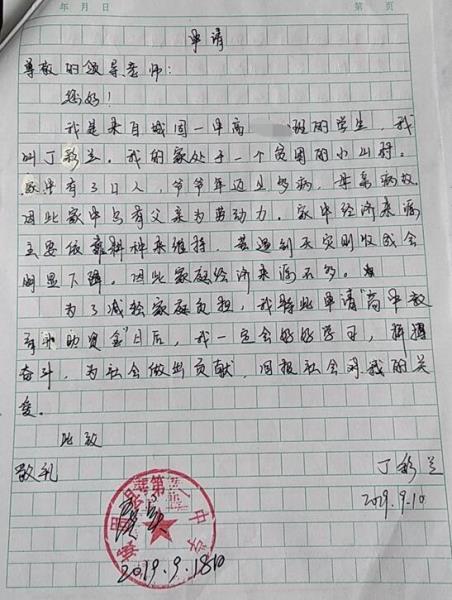 年 月 日
第 页
申请
尊敬的领导老师：
您好！
我是来自城固一中高 班的学生，我
叫丁彩兰。我的家处于一个贫困的小山村。
家中有3口人，爷爷年迈多病，母亲病故
因此家中只有父亲为劳动力。家中经济来源
主要依靠耕种来维持，若遇到天灾则收成会
明显下降。因此家庭经济来源不多。
为了减轻家庭负担，我特此申请"高中教
育补助资金"日后，我一定会好好学习，拼搏
奋斗，为社会做出贡献，回报社会对我的关
爱。
此致
敬礼
丁彩兰
2019.9.10
中学
2019.9.18